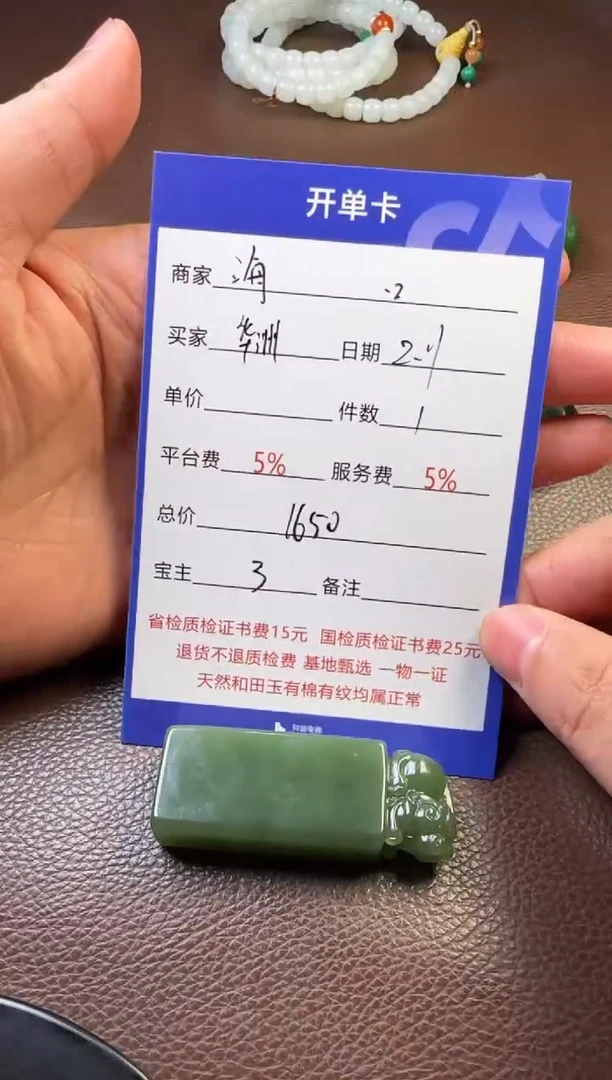 开单卡
商家 海
买家 华洲 日期
单价 件数 1
平台费 5% 服务费 5%
总价 1650
宝主 3 备注
省检质检证书费15元 国检质检证书费25元
退货不退质检费 基地甄选 一物一证
天然和田玉有棉有纹均属正常